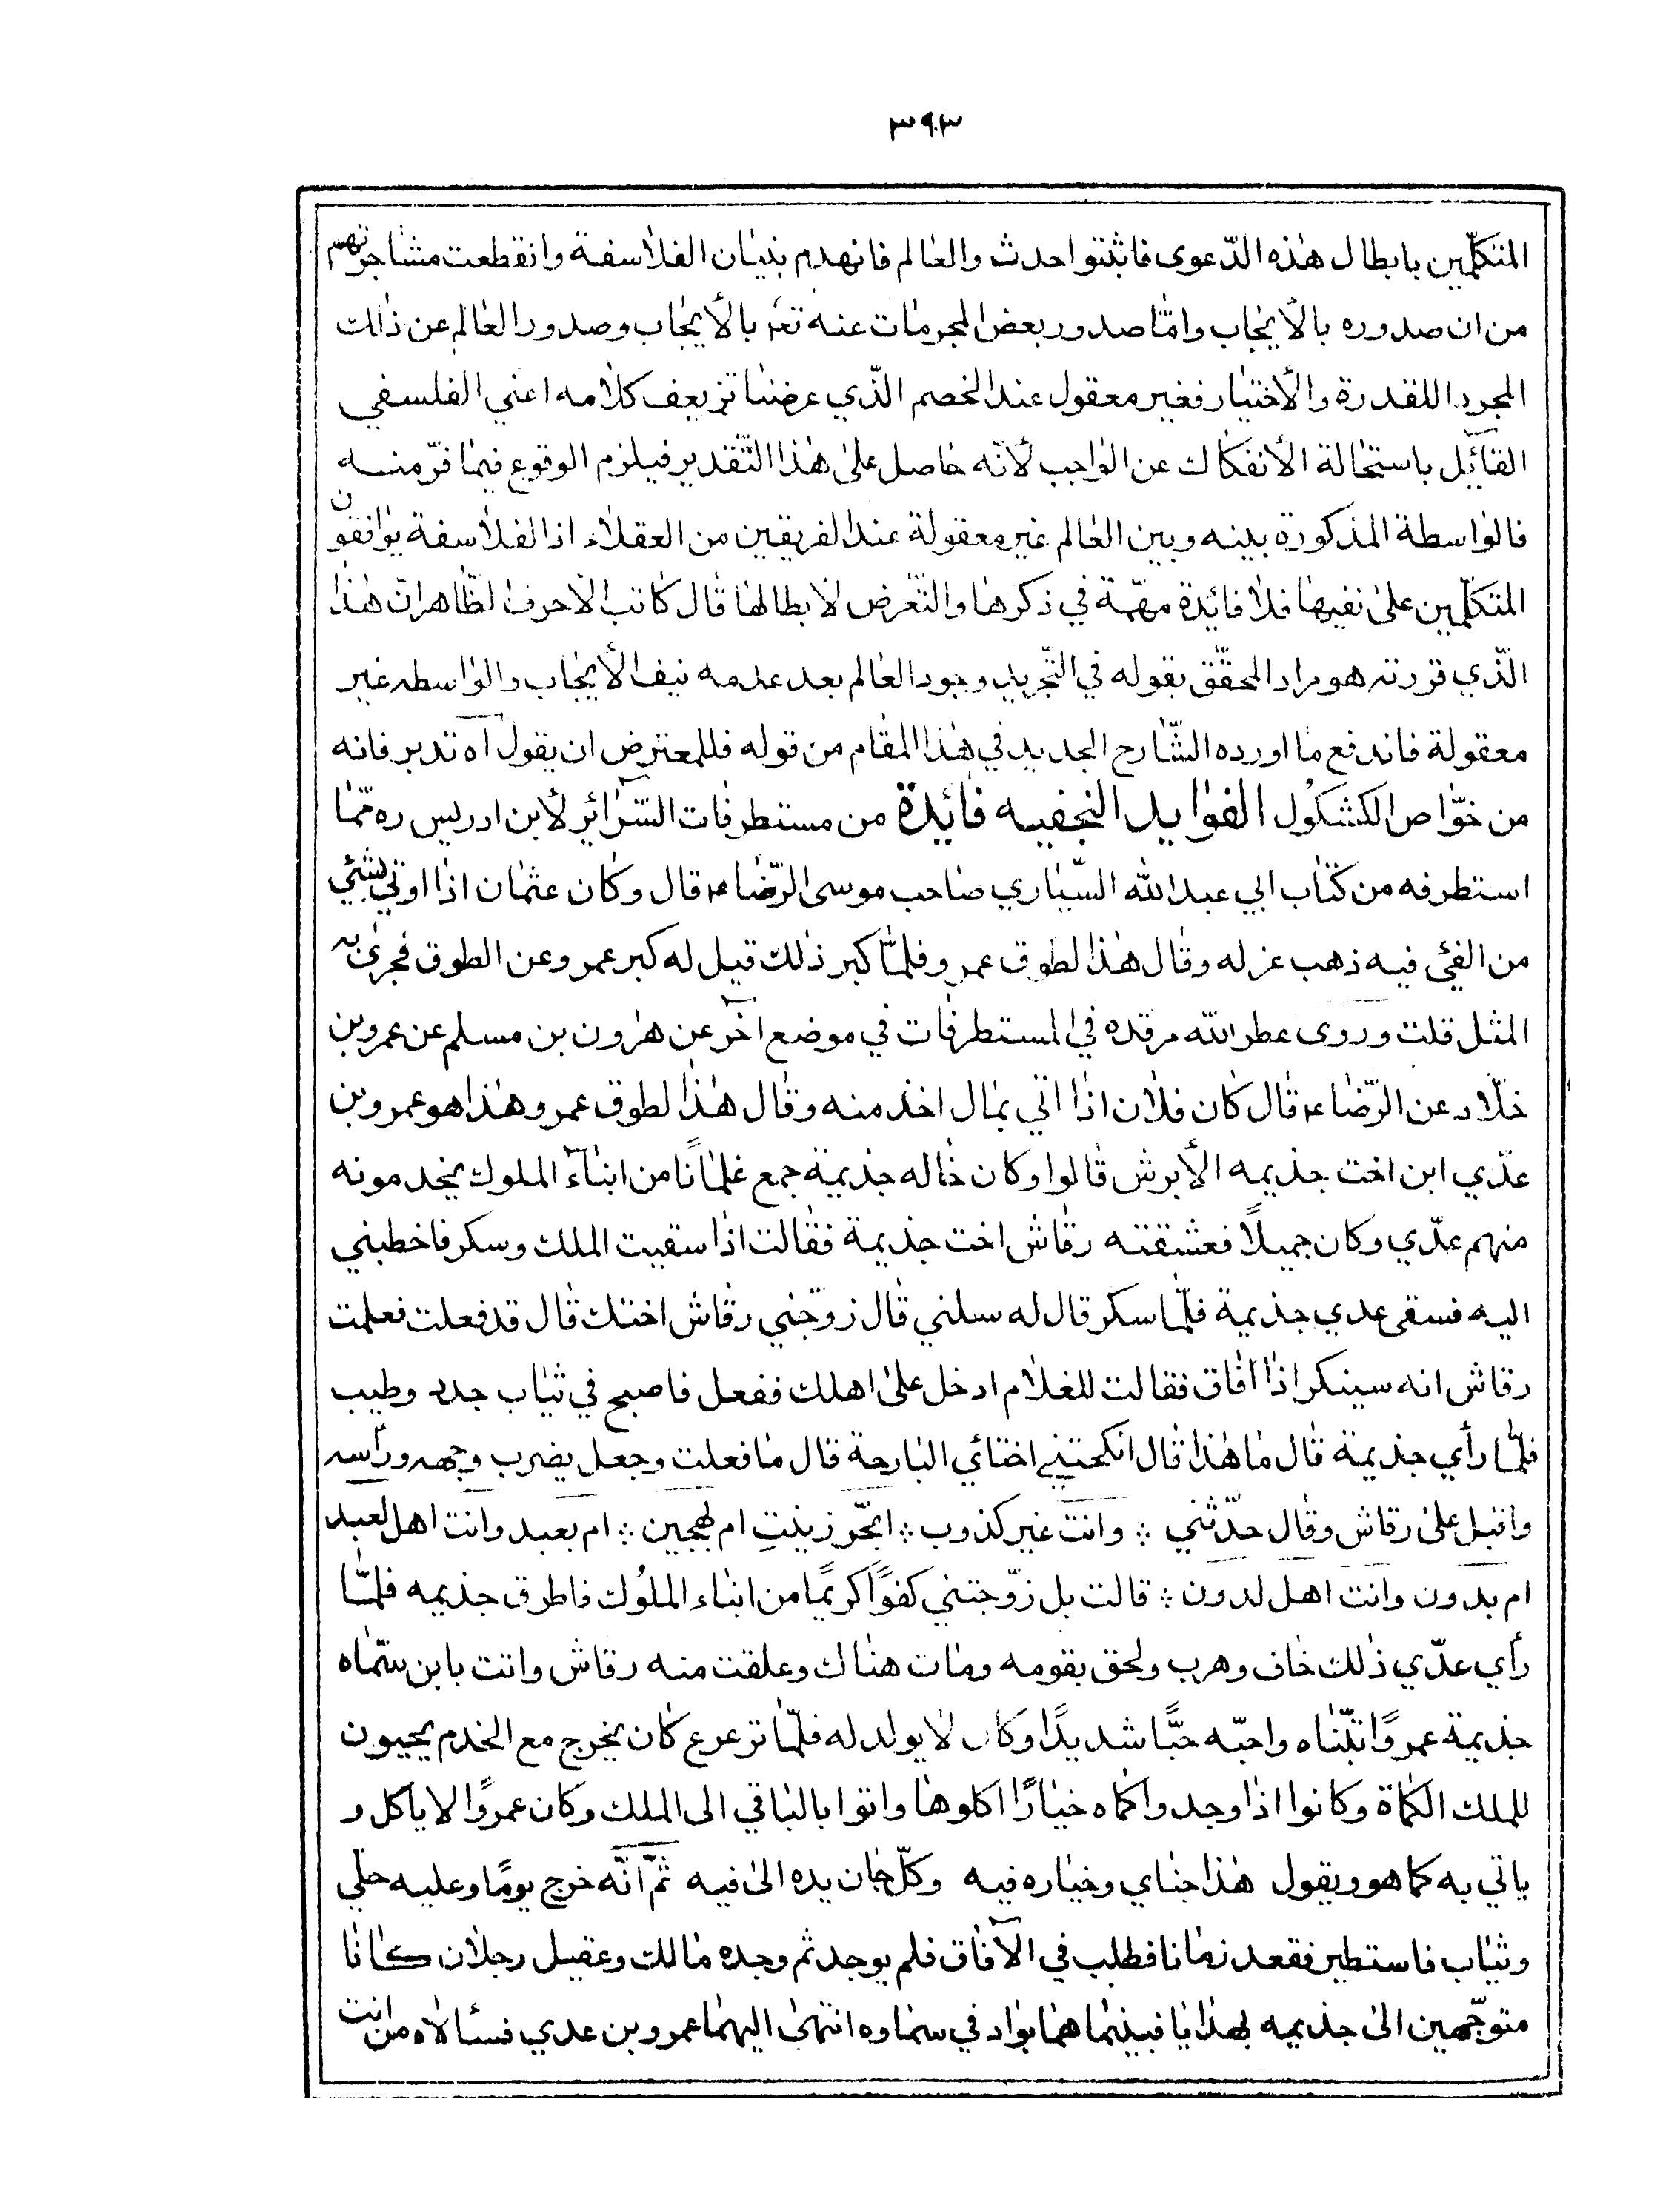 ٣٩٣
المتكلّمين بابطال هذه الدّعوى فاثبتوا حدث والعالم فانهدم بنيان الفلاسفة وانقطعت مشاجرتهم
من ان صدوره بالأيجاب وامّا صدور بعض المجرمات عنه تعه بالأيجاب وصدور العالم عن ذلك
المجرد اللقدرة والأختيار فغير معقول عند الخصم الذّي عرضنا تزيعف كلامه اعني الفلسفي
القائيل باستحالة الأنفكاك عن الواجب لأنّه حاصل على هذا التّقدير فيلزم الوقوع فيما فرّ منه
فالواسطة المذكورة بينه وبين العالم غير معقولة عند الفريقين من العقلاء اذ الفلاسفة يوافقون
المتكلّمين على نفيها فلا فائيدة مهمّة في ذكرها والتّعرض لابطالها قال كاتب الاحرف الظّاهر انّ هذا
الّذي قررته هو مراد المحقّق بقوله في التّجريد وجود العالم بعد عدمه نيف الأيجاب والواسطه غير
معقولة فاندفع ما اورده الشّارح الجديد في هذا المقام من قوله فللمعترض ان يقول اه تدبر فانه
من خوّاص الكشكول الفوايد النجفيه فائيدة من مستطرفات السّرائر لأبن ادريس ره ممّا
استطرفه من كتاب ابي عبد الله السّياري صاحب موسى الرّضاء قال وكان عثمان اذا اوتي بشئي
من الفئي فيه ذهب عزله وقال هذا لطوق عمرو فلمّا كبر ذلك قيل له كبر عمرو عن الطوق فجرى به
المثل قلت وروى عطر الله مرقده في المستطرفات في موضع آخر عن هرون بن مسلم عن عمرو بن
خلّاد عن الرّضاء قال كان فلان اذا اتي بمال اخذ منه وقال هذا لطوق عمرو هذا هو عمرو بن
عدّي ابن اخت جذيمه الأبرش قالوا وكان خاله جذيمة جمع غلمانًا من ابناء الملوك يخدمونه
منهم عدّي وكان جميلاً فعشقته رقاش اخت جذيمة فقالت اذا سقيت الملك وسكر فاخطبني
اليه فسقى عدي جذيمة فلمّا سكر قال له سلني قال زوّجني رقاش اختك قال قد فعلت فعلمت
رقاش انه سينكر اذا افاق فقالت للغلام ادخل على اهلك ففعل فاصبح في ثياب جدد وطيب
فلمّا رأي جذيمة قال ما هذا قال انكحتني اختائي البارحة قال ما فعلت وجعل يضرب وجهه ورأسه
واقبل على رقاش وقال حدّثني ∴ وانت غير كذوب ∴ ابحّر زينت ام لهجين ∴ ام بعبد وانت اهل لعبد
ام بدون وانت اهل لدون ∴ قالت بل زوّجتني كفوًا كريمًا من ابناء الملوك فاطرق جذيمه فلمّا
رأي عدّي ذلك خاف وهرب ولحق بقومه ومات هناك وعلقت منه رقاش واتت بابن سمّاه
جذيمة عمروًا تبّناه واحبّه حبًّا شديدًا وكان لا يولد له فلمّا ترعرع كان يخرج مع الخدم يجيبون
للملك الكماة وكانوا اذا وجدوا كماه خيارًا اكلوها واتوا بالباقي الى الملك وكان عمروًا لا ياكل و
ياتي به كما هو ويقول هذا جناي وخياره فيه وكلّ جان يده الى فيه ثمّ انّه خرج يومًا وعليه حلّي
وثياب فاستطير فقعد زمانا فطلب في الآفاق فلم يوجد ثم وجده مالك وعقيل رجلان كانا
متوجّهين الى جذيمه بهذايا فبينما هما بواد في سماوه انتهى اليهما عمرو بن عدي فسئالاه من انت